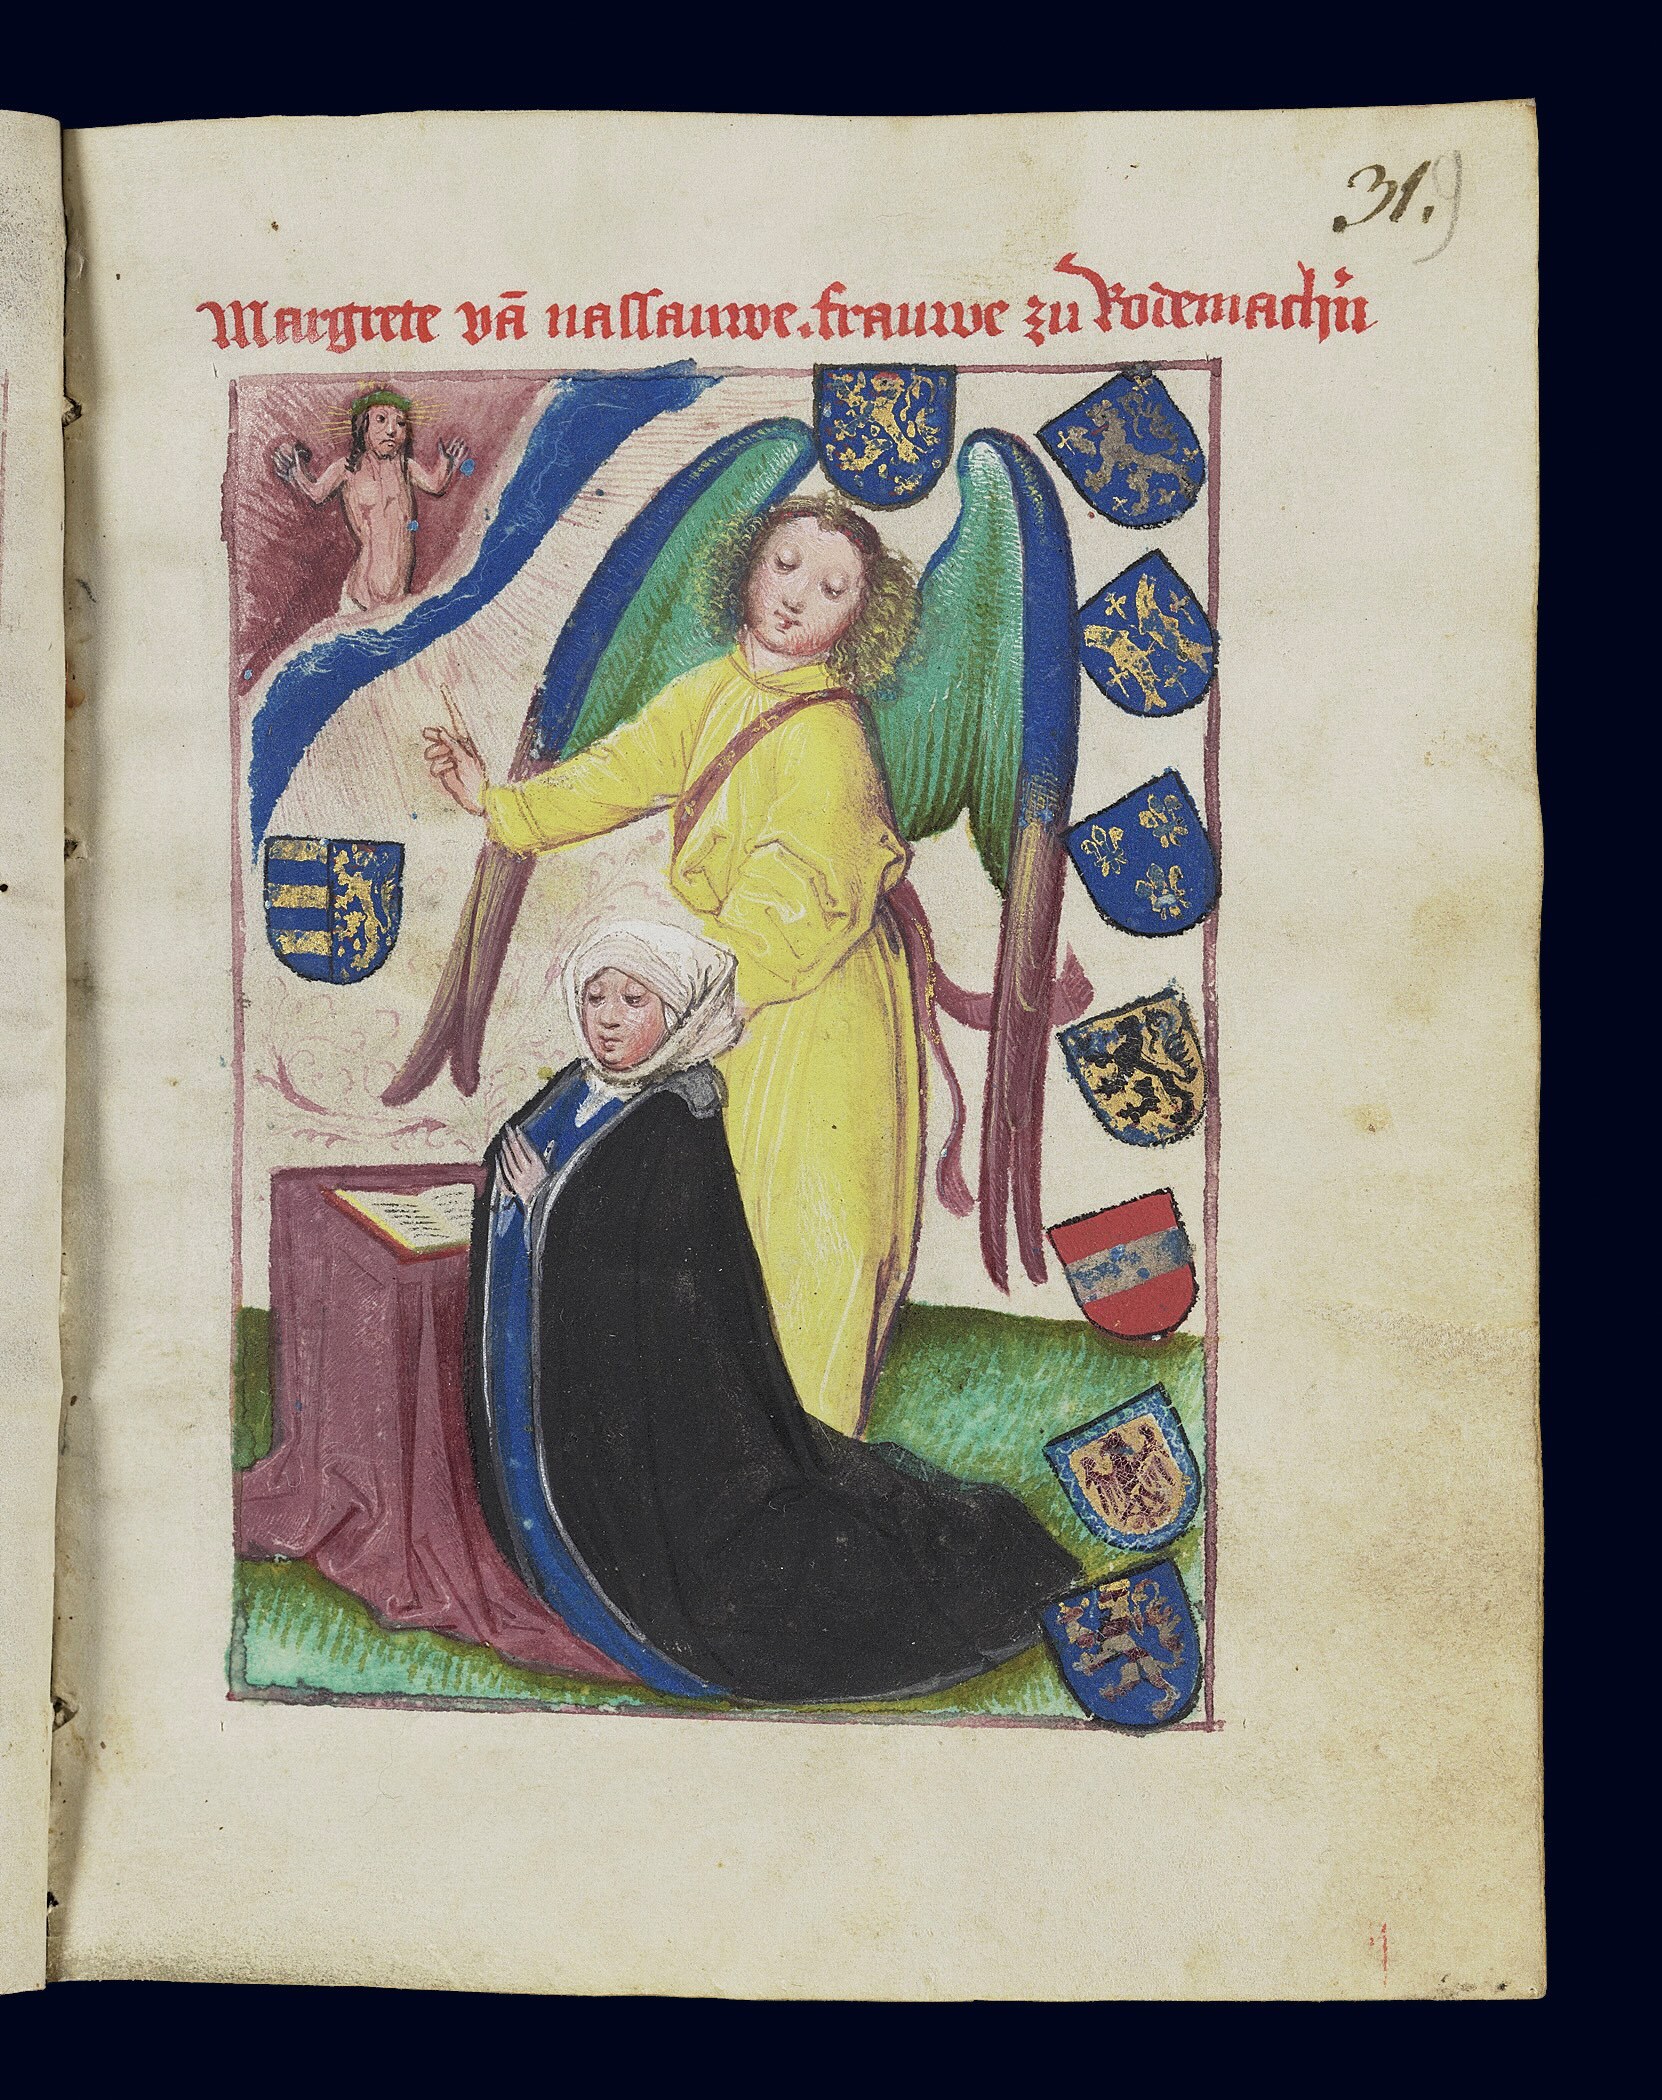 31.9
Margrete vā nassauwe . frauwe zu Rodemachn̄